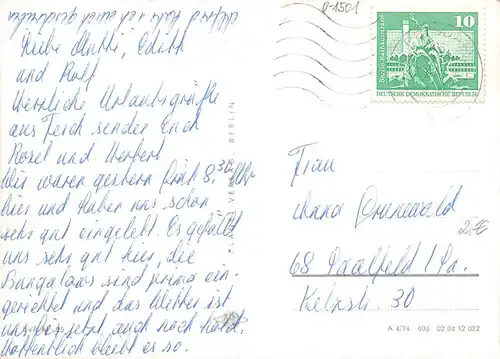 Liebe Mutti, Edith
und Rolf
Herzliche Urlaubsgrüße
aus Teich senden Euch
Rosel und Herbert
Wir waren gestern früh 8.30 Uhr
hier und haben uns schon
sehr gut eingelebt. Es gefällt
uns sehr gut hier, die
Bungalows sind prima ein-
gerichtet und das Wetter ist
uns bis jetzt auch noch hold.
Hoffentlich bleibt es so.
VERLAG BERLIN
0-1501
10
Berlin-Rathausstrasse
DEUTSCHE DEMOKRATISCHE REPUBLIK
Frau
Anna Grunewald
2,-€
68 Saalfeld / Sa.
Kelzstr. 30
A 4/74 605 02 04 12 022